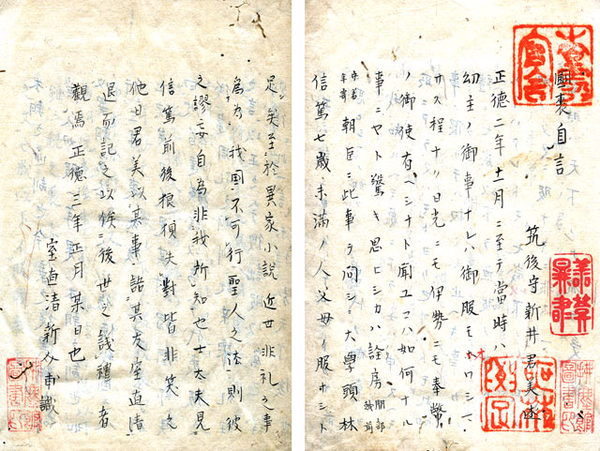 國喪自言
筑後守新井君美述
正德二年十一月ニ至テ當時ハ
幼主ノ御事ナレハ御服モ
サス程ナリ日光ニモ伊勢ニモ奉幣
ノ御使有ヘシナト聞エコハ如何ナル
事ニヤト驚キ思ヒシカハ詮房間部越前
朝臣ニ此事ヲ問シニ大學頭林
信篤七歳未滿ノ人父母ノ服ナシト
足矣至於異家小說近世非礼之事
爲乃我国不可行聖人之法則彼
之謬妄自為非我所知也士大夫見
信篤前後根損失對皆非笑之
他日君美以其事語其友室直清
退而記之以候後世之議禮者
觀焉正德三年正月某日也
室直清新父甫識